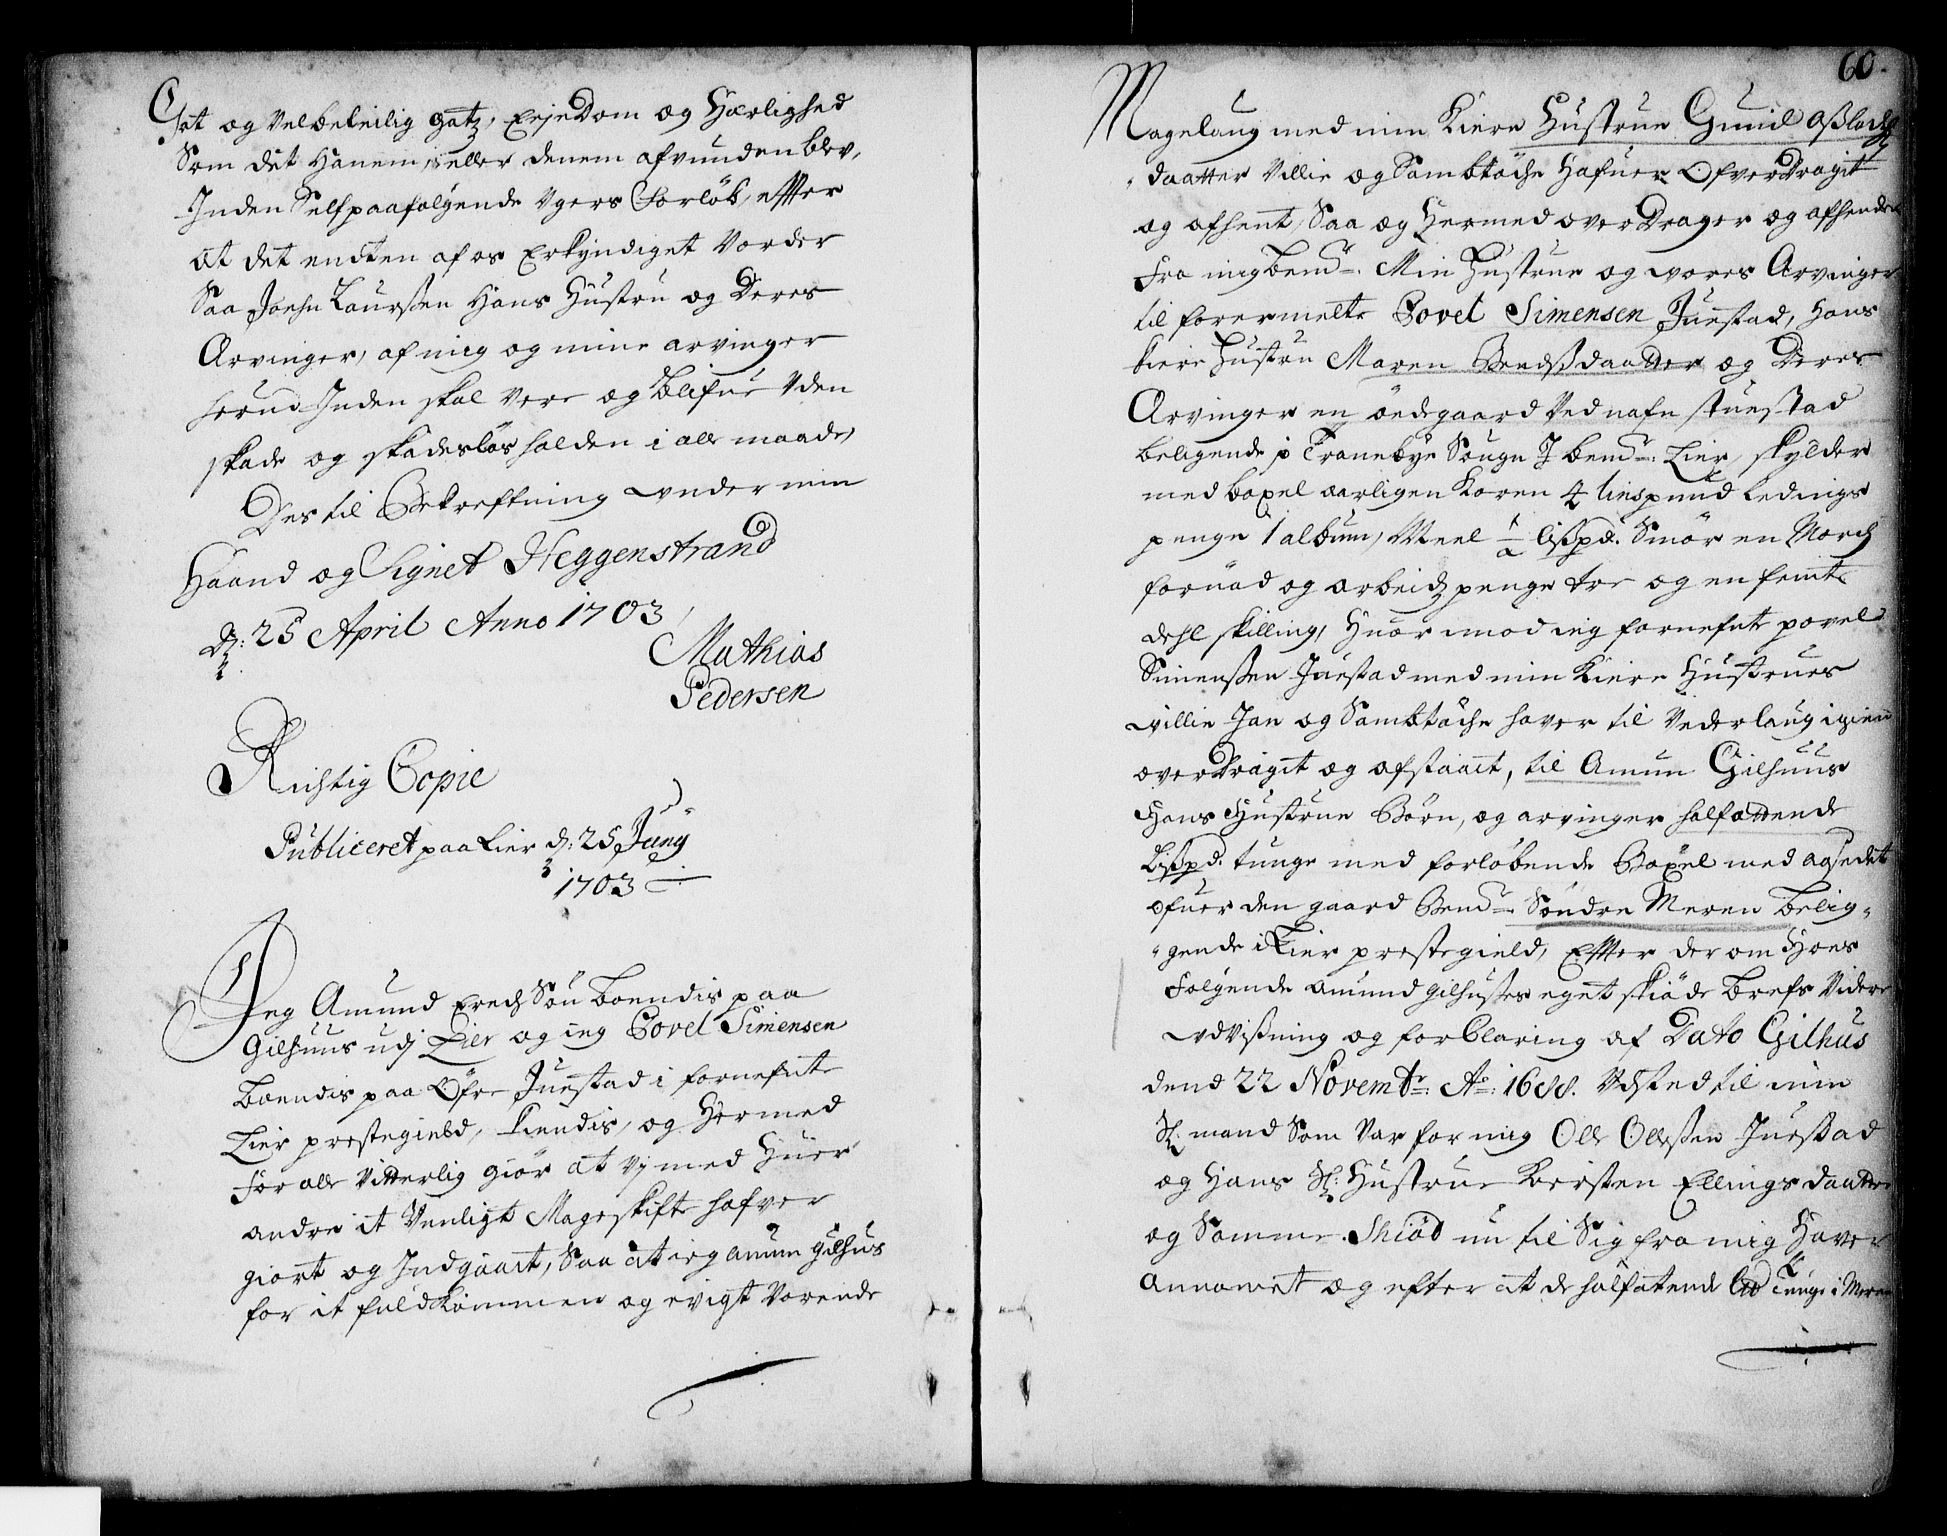 Got og velbeleilig gotz, EyeDom og Herlighed
Som det Hanem, eller denem afvunden blev,
Inden Sexpaafølgende Ugers Forløb, effter
at det endten af os Erkyndiget Vorder
Saa Joehn Laurssen Hans Hustru og Deres
Arvinger, af mig og mine arvinger
herud Inden skal vere og blifue Uden
skade og skadesløs holden i alle maade,
Des til Bekreftning under min
Haand og Signet Heggenstrand
d: 25 April Anno 1703,
Mathias
Pedersen
Richtig Copie
Publiceret paa Lier d: 25 Juny
1703
Jeg Amund Erechsøn boendis paa
Gilhuus udj Lier og ieg Povel Simensen
boendis paa Øfre Juestad i fornefnte
Lier prestegield, kiendis, og Hermed
For alle Vitterlig giør at vj med Huer
andre it Venligt Mageskifte hafver
giort og Indgaait, Saa at ieg amun gilhus
for it fuldkommen og evigt Varende
60.
Magelaug med min Kiere Hustrue Gunil Oßlachs
daatter Villie og Sambtøche Hafuer OfverDragit
og afhent, Saa og Hermed overDrager og afhender
Fra mig bemte. Min Hustrue og vores Arvinger
til forermelte Povel Simensen Juestad, Hans
kiere Hustru Maren Bendsdaatter og Deres
Arvinger en ødegaard Ved nafn stuestad
beligende i Tranebye Sougn J bemte: Lier, skylder
med boxel aarligen Koren 4 lispund ledings
penge 1 album, Meel 1/2 lißpd. Smør en March
fornød og arbeidz penge tre og en femte
dehl skilling, Huor imod ieg fornefnte povel
Simenssen Juestad med min Kiere Hustrues
villie Jan og Sambtøche haver til Vederlaug igien
overDragit og afstaait, til Amun Gilhuus
Hans Hustrue Børn, og arvinger halfottende
lißpd. tunge med forløbende Boxel med aasedet
ofuer den gaard Bemte. Søndre Meren belig-
gende i Lier prestegield, Effter der om Hans
Følgende amund gilhusses eget skiøde brefs Videre
udvißning og forklaring af Dato Gilhus
dend 22 Novembr: Ao: 1688. Udsted til min
Sl: mand Som Var for mig Olle Ollessen Juestad
og Hans Sl: Hustrue Kirsten Ellings daatter
og Samme Skiød nu til Sig fra mig Haver
annamet og efter at de halfotende lid tunge i Meren